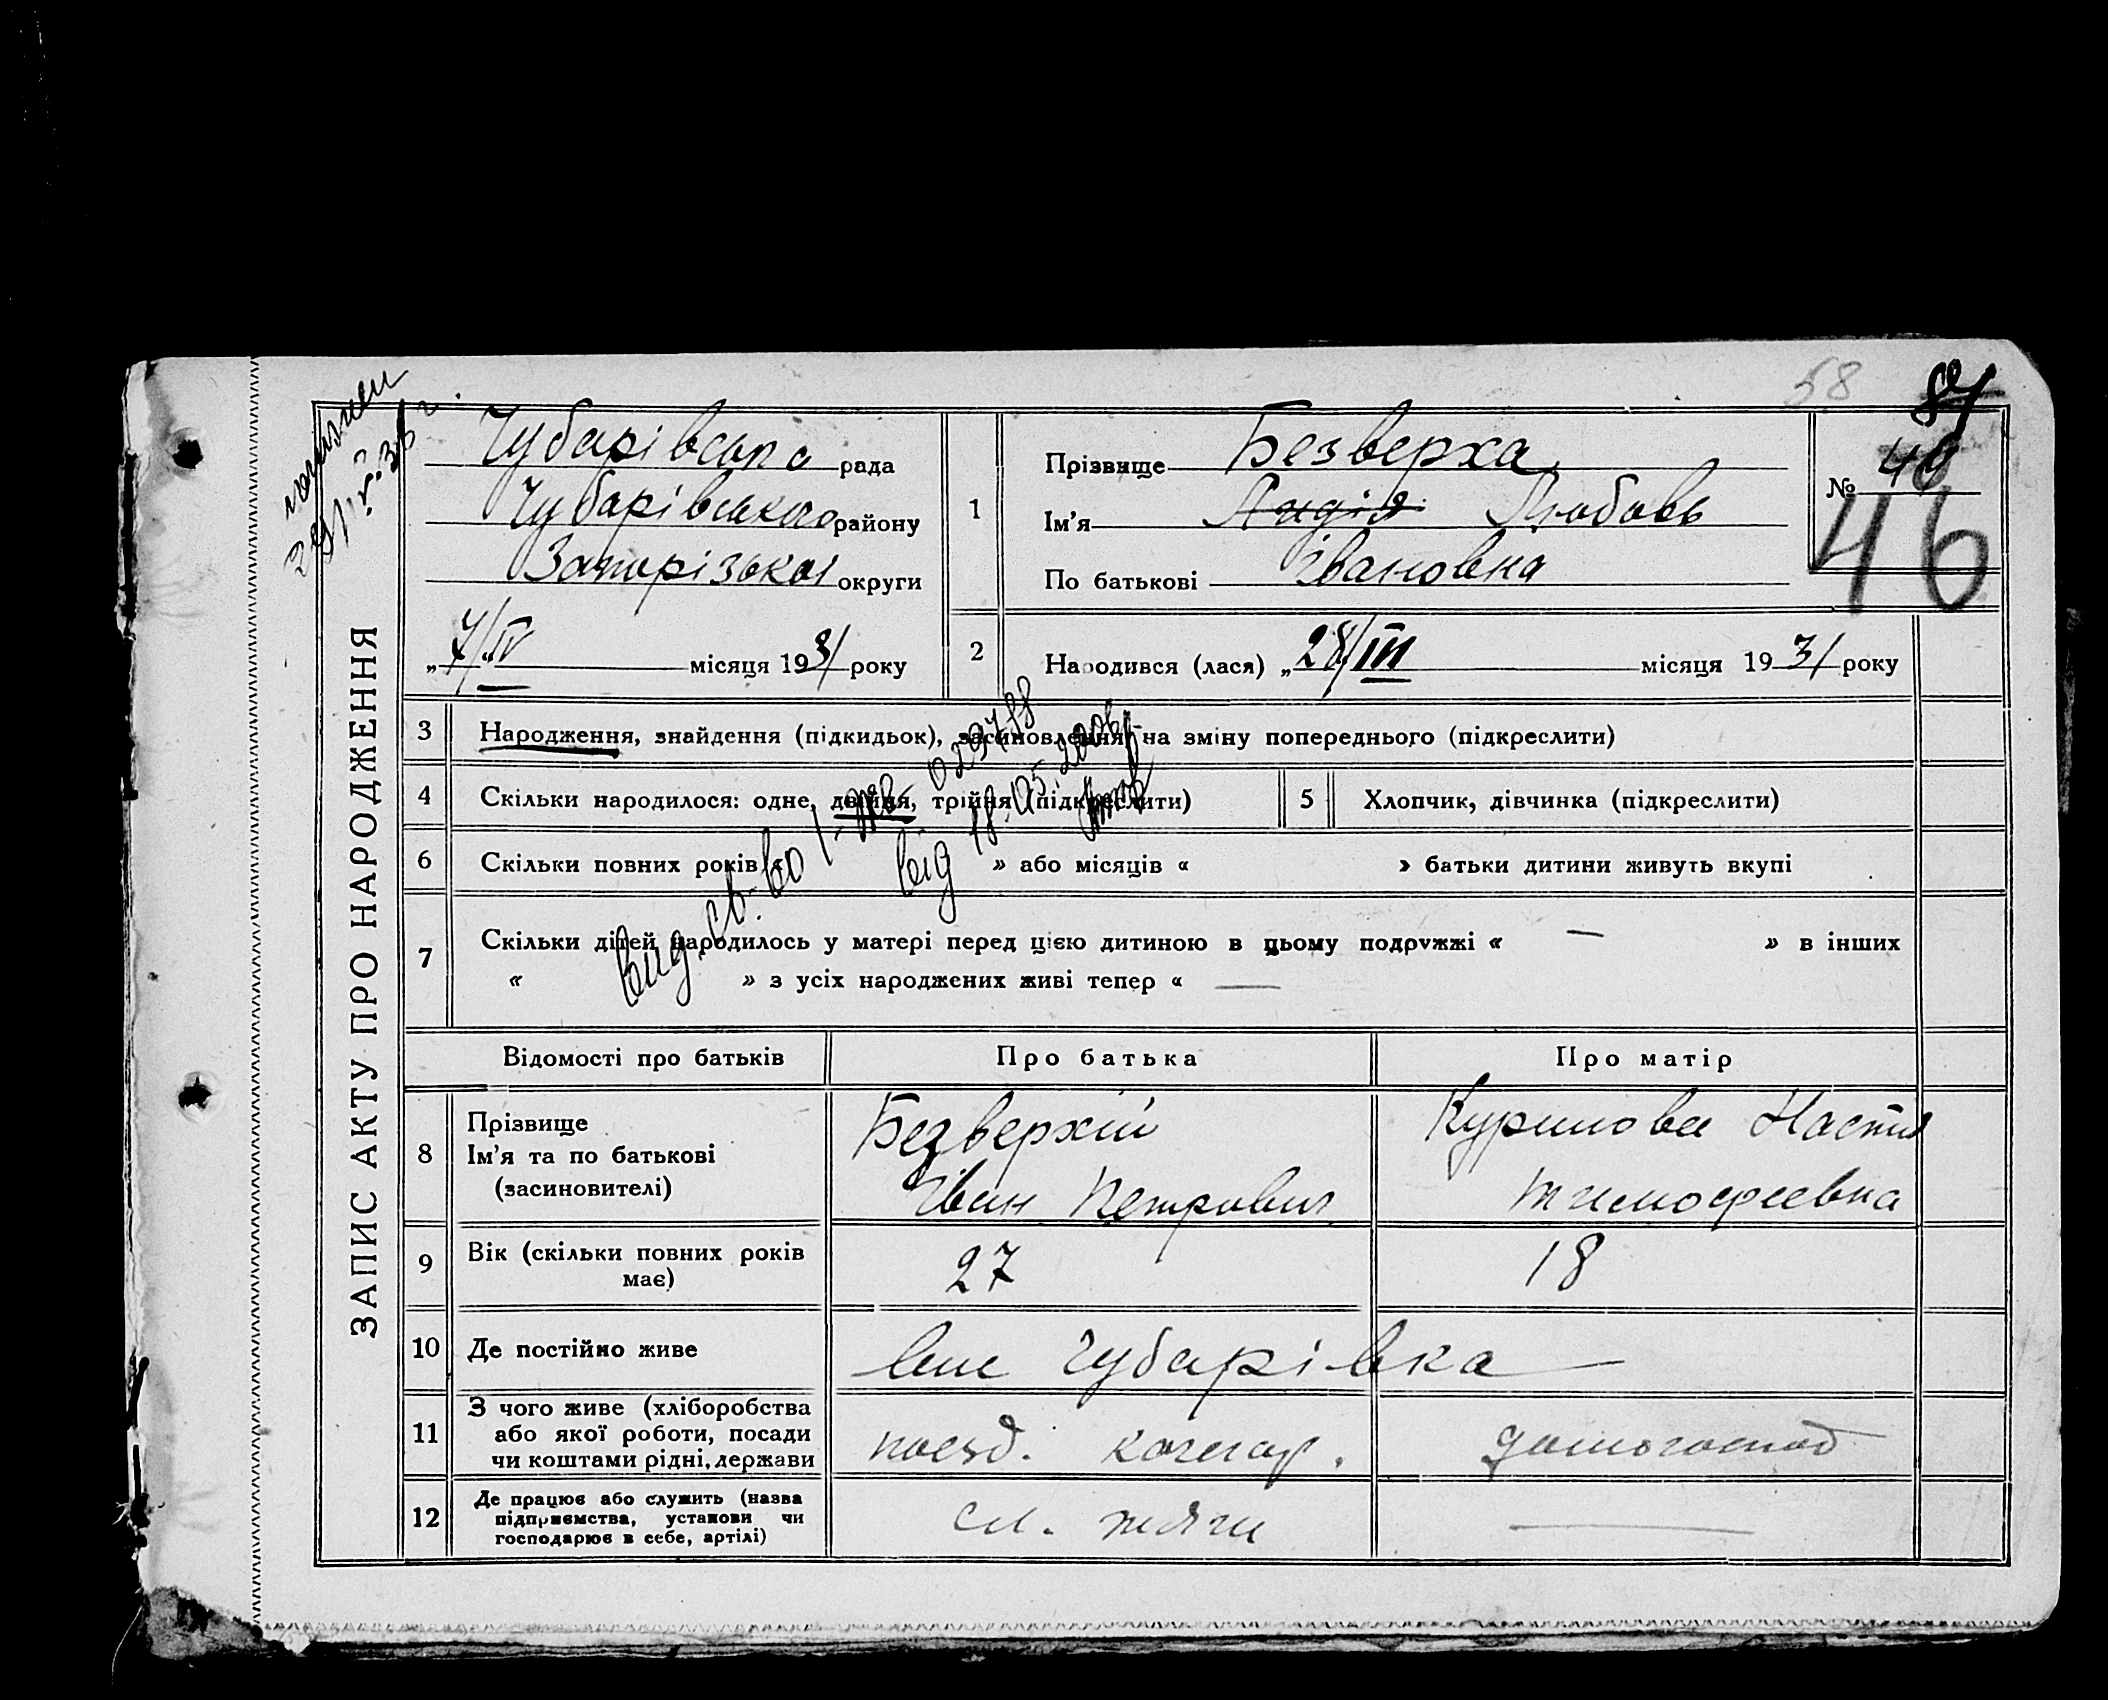 58
87
ЗАПИС АКТУ ПРО НАРОДЖЕННЯ
Чубарівська рада
Чубарівського району
Запорізької округи
„7/IV“ місяця 1931 року
1
Прізвище Безверха
Ім'я Лидія Любовь
По батькові Івановна
№ 46
46
2
Народився (лася) „28/III місяця 1931 року
3 Народження, знайдення (підкидьок), засиновлення, на зміну попереднього (підкреслити)
4 Скільки народилося: одне, двійня, трійня (підкреслити)
5 Хлопчик, дівчинка (підкреслити)
6 Скільки повних років « » або місяців « » батьки дитини живуть вкупі
7 Скільки дітей народилось у матері перед цією дитиною в цьому подружжі « — » в інших
« » з усіх народжених живі тепер « —
вид. св-во 1- 029788
від 18.05.2006р
Відомості про батьків
Про батька
Про матір
8 Прізвище
Ім'я та по батькові
(засиновителі)
Безверхий
Іван Петрович
Настя
Тимофеевна
9 Вік (скільки повних років
має)
27
18
10 Де постійно живе
Чубарівка
11 З чого живе (хліборобства
або якої роботи, посади
чи коштами рідні, держави
поезд. кочегар.
домогоспод
12 Де працює або служить (назва
підприємства, установи чи
господарює в себе, артілі)
сл. тяги
—